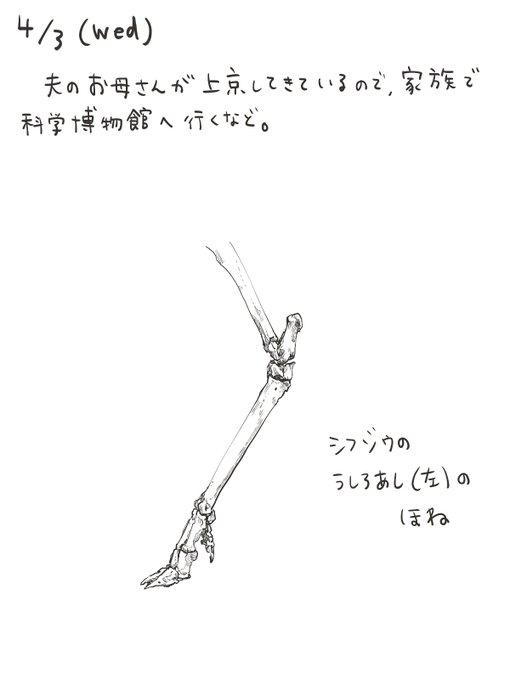 4/3 (wed)
夫のお母さんが上京してきているので、家族で
科学博物館へ行くなど。
シフゾウの
うしろあし(左)の
ほね